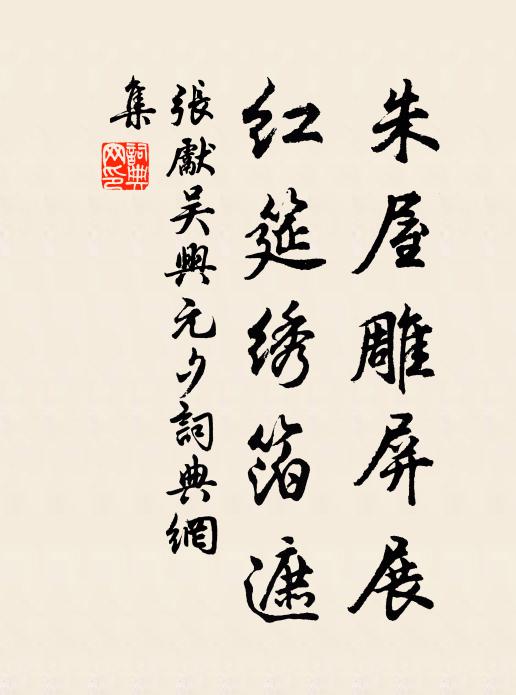 朱屋雕屏展
红筵绣箔遮
張獻吴興元夕詞典網
集
詞典网印